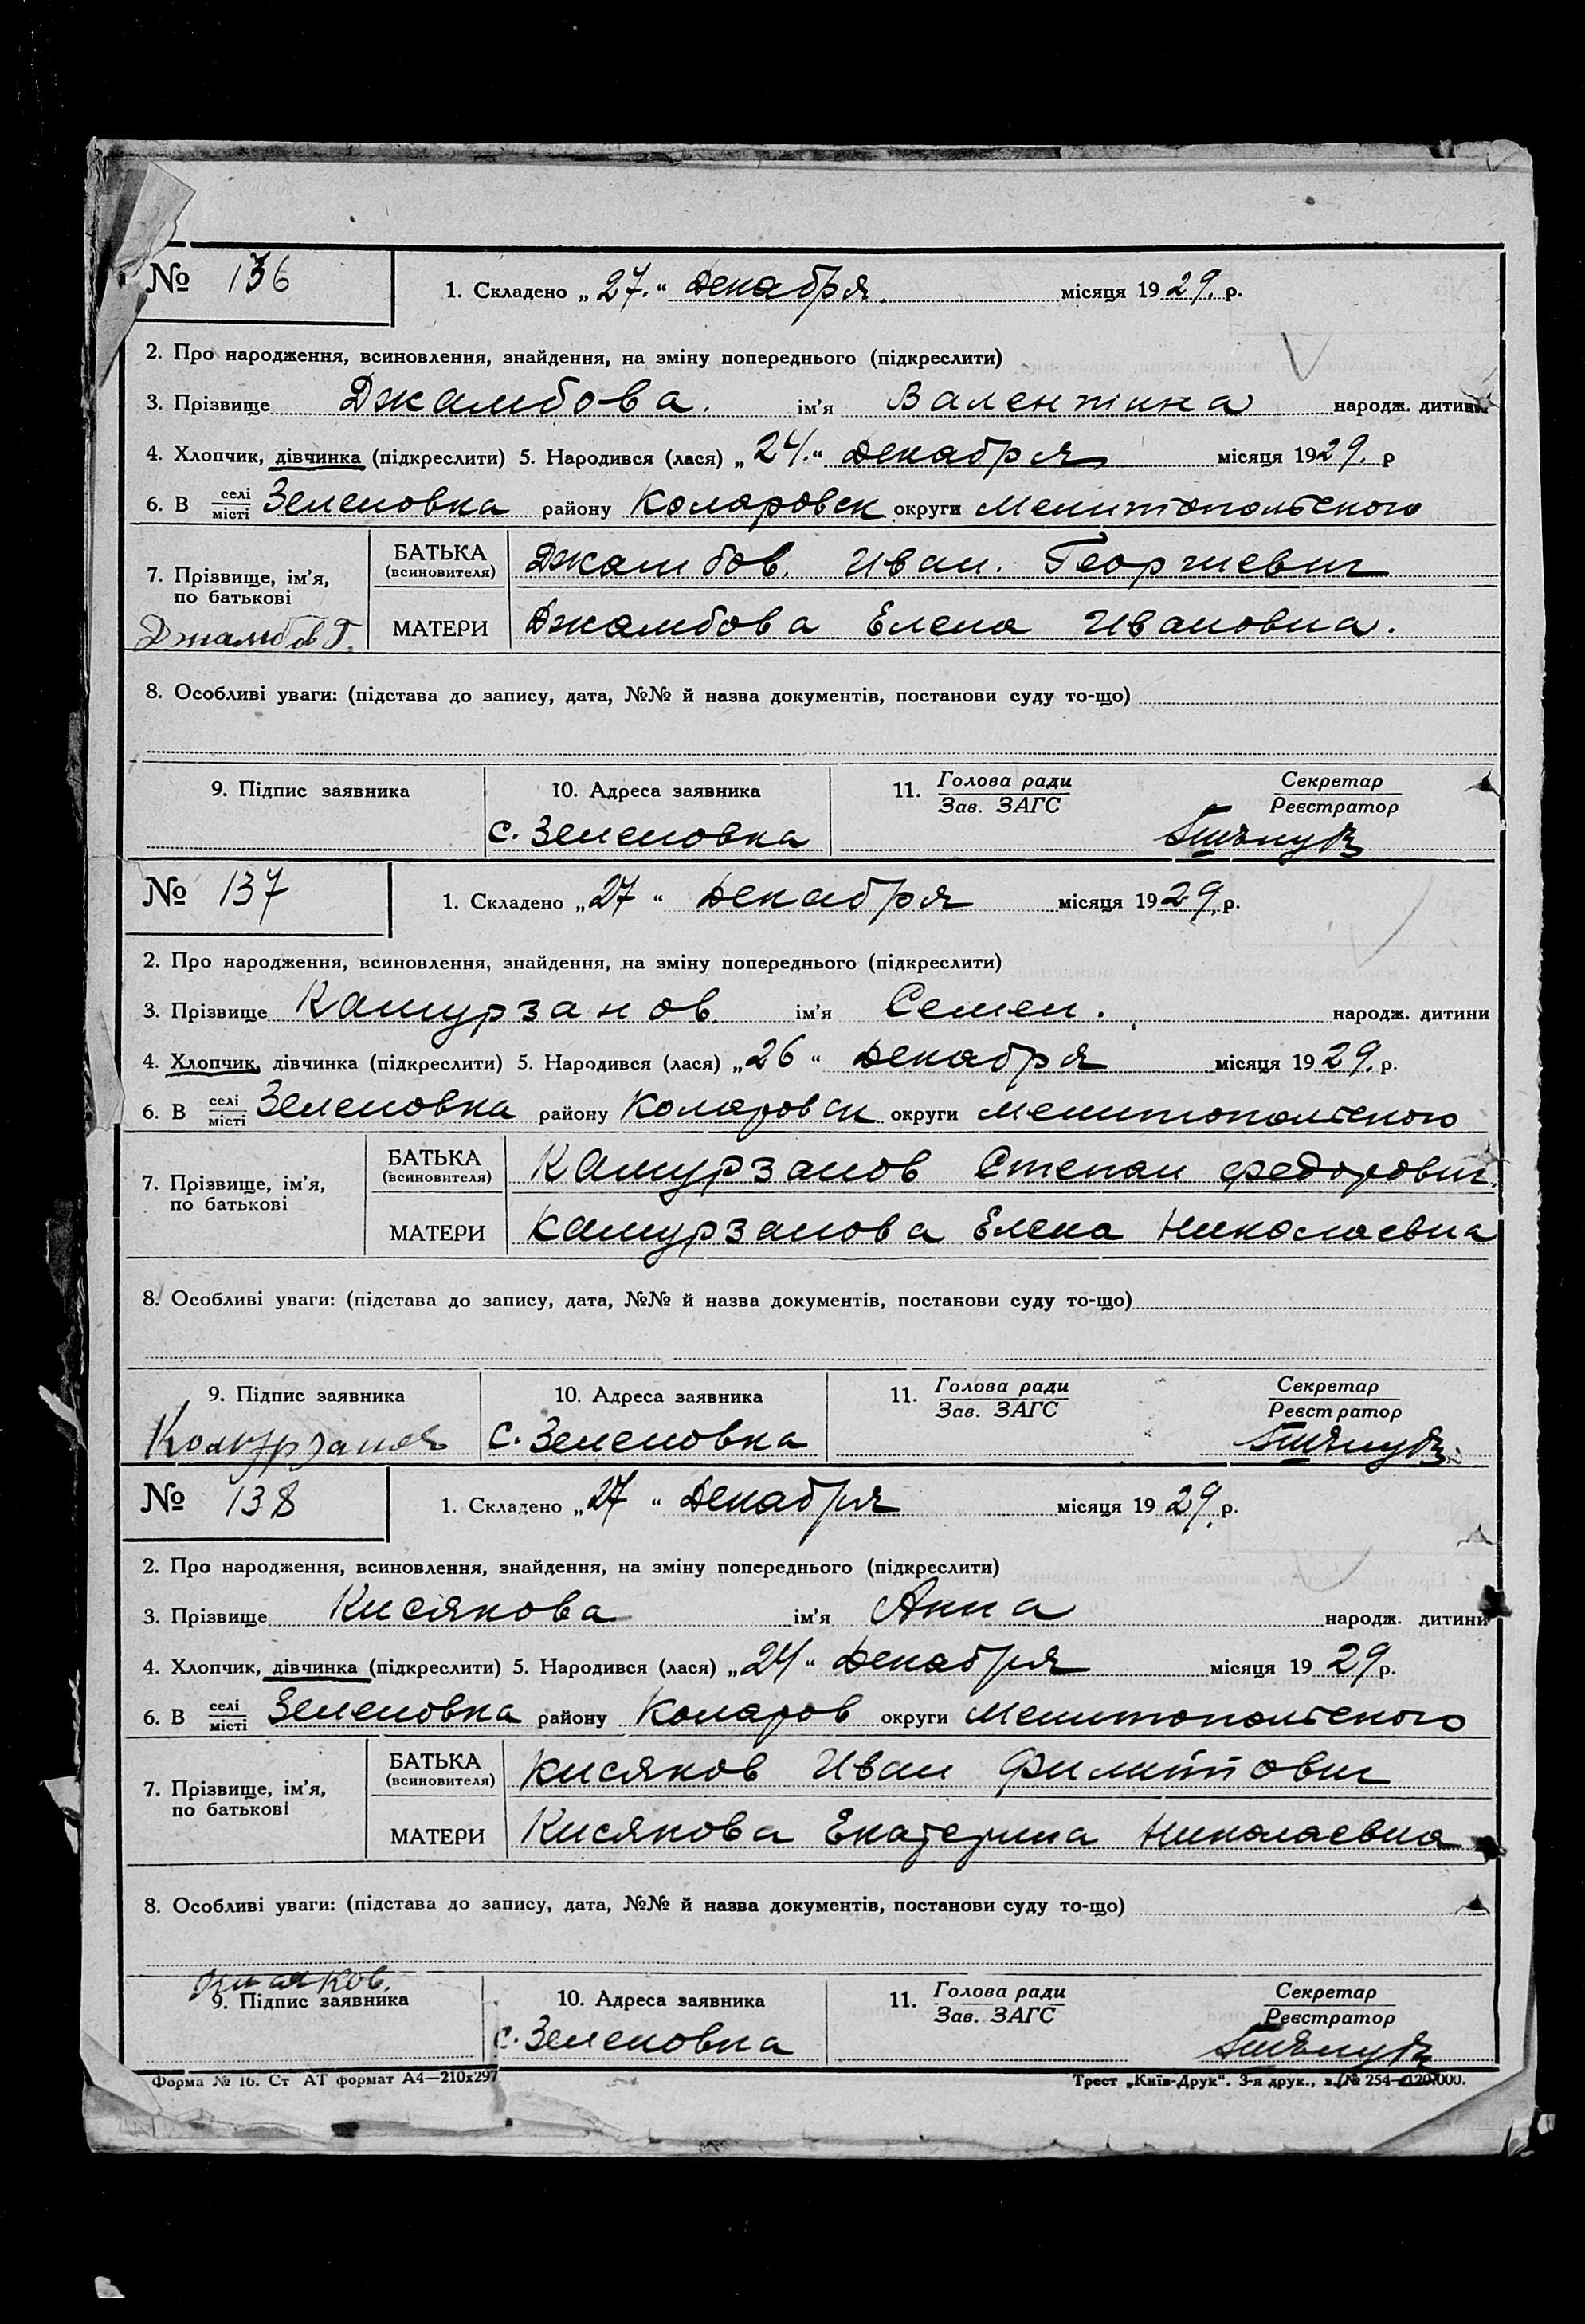 № 136 1. Складено „27.“ Декабря. місяця 1929. р.
2. Про народження, всиновлення, знайдення, на зміну попереднього (підкреслити)
3. Прізвище Джамбова. ім'я Валентина народж. дитини
4. Хлопчик, дівчинка (підкреслити) 5. Народився (лася) „24.“ Декабря місяця 1929. р
6. В селі місті Зеленовка району Коларовск округи Мелитопольского
7. Прізвище, ім'я, по батькові БАТЬКА (всиновителя) Джамбов. Иван. Георгиевич
Джамбов Г. МАТЕРИ Джамбова Елена Ивановна.
8. Особливі уваги: (підстава до запису, дата, №№ й назва документів, постанови суду то-що)
9. Підпис заявника 10. Адреса заявника 11. Голова ради Зав. ЗАГС Секретар Реєстратор
с. Зеленовка
№ 137 1. Складено „27“ Декабря місяця 1929. р.
2. Про народження, всиновлення, знайдення, на зміну попереднього (підкреслити)
3. Прізвище Камурзанов. ім'я Семен. народж. дитини
4. Хлопчик, дівчинка (підкреслити) 5. Народився (лася) „26“ Декабря місяця 1929. р.
6. В селі місті Зеленовка району Коларовск округи Мелитопольского
7. Прізвище, ім'я, по батькові БАТЬКА (всиновителя) Камурзанов Степан Федорович.
МАТЕРИ Камурзанова Елена Николаевна
8. Особливі уваги: (підстава до запису, дата, №№ й назва документів, постанови суду то-що)
9. Підпис заявника 10. Адреса заявника 11. Голова ради Зав. ЗАГС Секретар Реєстратор
Камурзанов с. Зеленовка
№ 138 1. Складено „27“ Декабря місяця 1929. р.
2. Про народження, всиновлення, знайдення, на зміну попереднього (підкреслити)
3. Прізвище Кисякова ім'я Анна народж. дитини
4. Хлопчик, дівчинка (підкреслити) 5. Народився (лася) „24“ Декабря місяця 1929 р.
6. В селі місті Зеленовка району Коларов округи Мелитопольского
7. Прізвище, ім'я, по батькові БАТЬКА (всиновителя) Кисяков Иван Филиппович
МАТЕРИ Кисякова Екатерина Николаевна
8. Особливі уваги: (підстава до запису, дата, №№ й назва документів, постанови суду то-що)
9. Підпис заявника 10. Адреса заявника 11. Голова ради Зав. ЗАГС Секретар Реєстратор
с. Зеленовка
Форма № 16. Ст АТ формат А4—210х297 Трест „Київ-Друк“. 3-я друк., з. № 254—120.000.